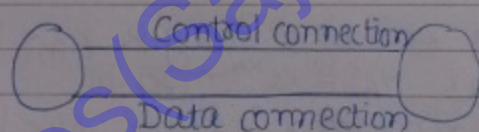 Control connection
Data connection